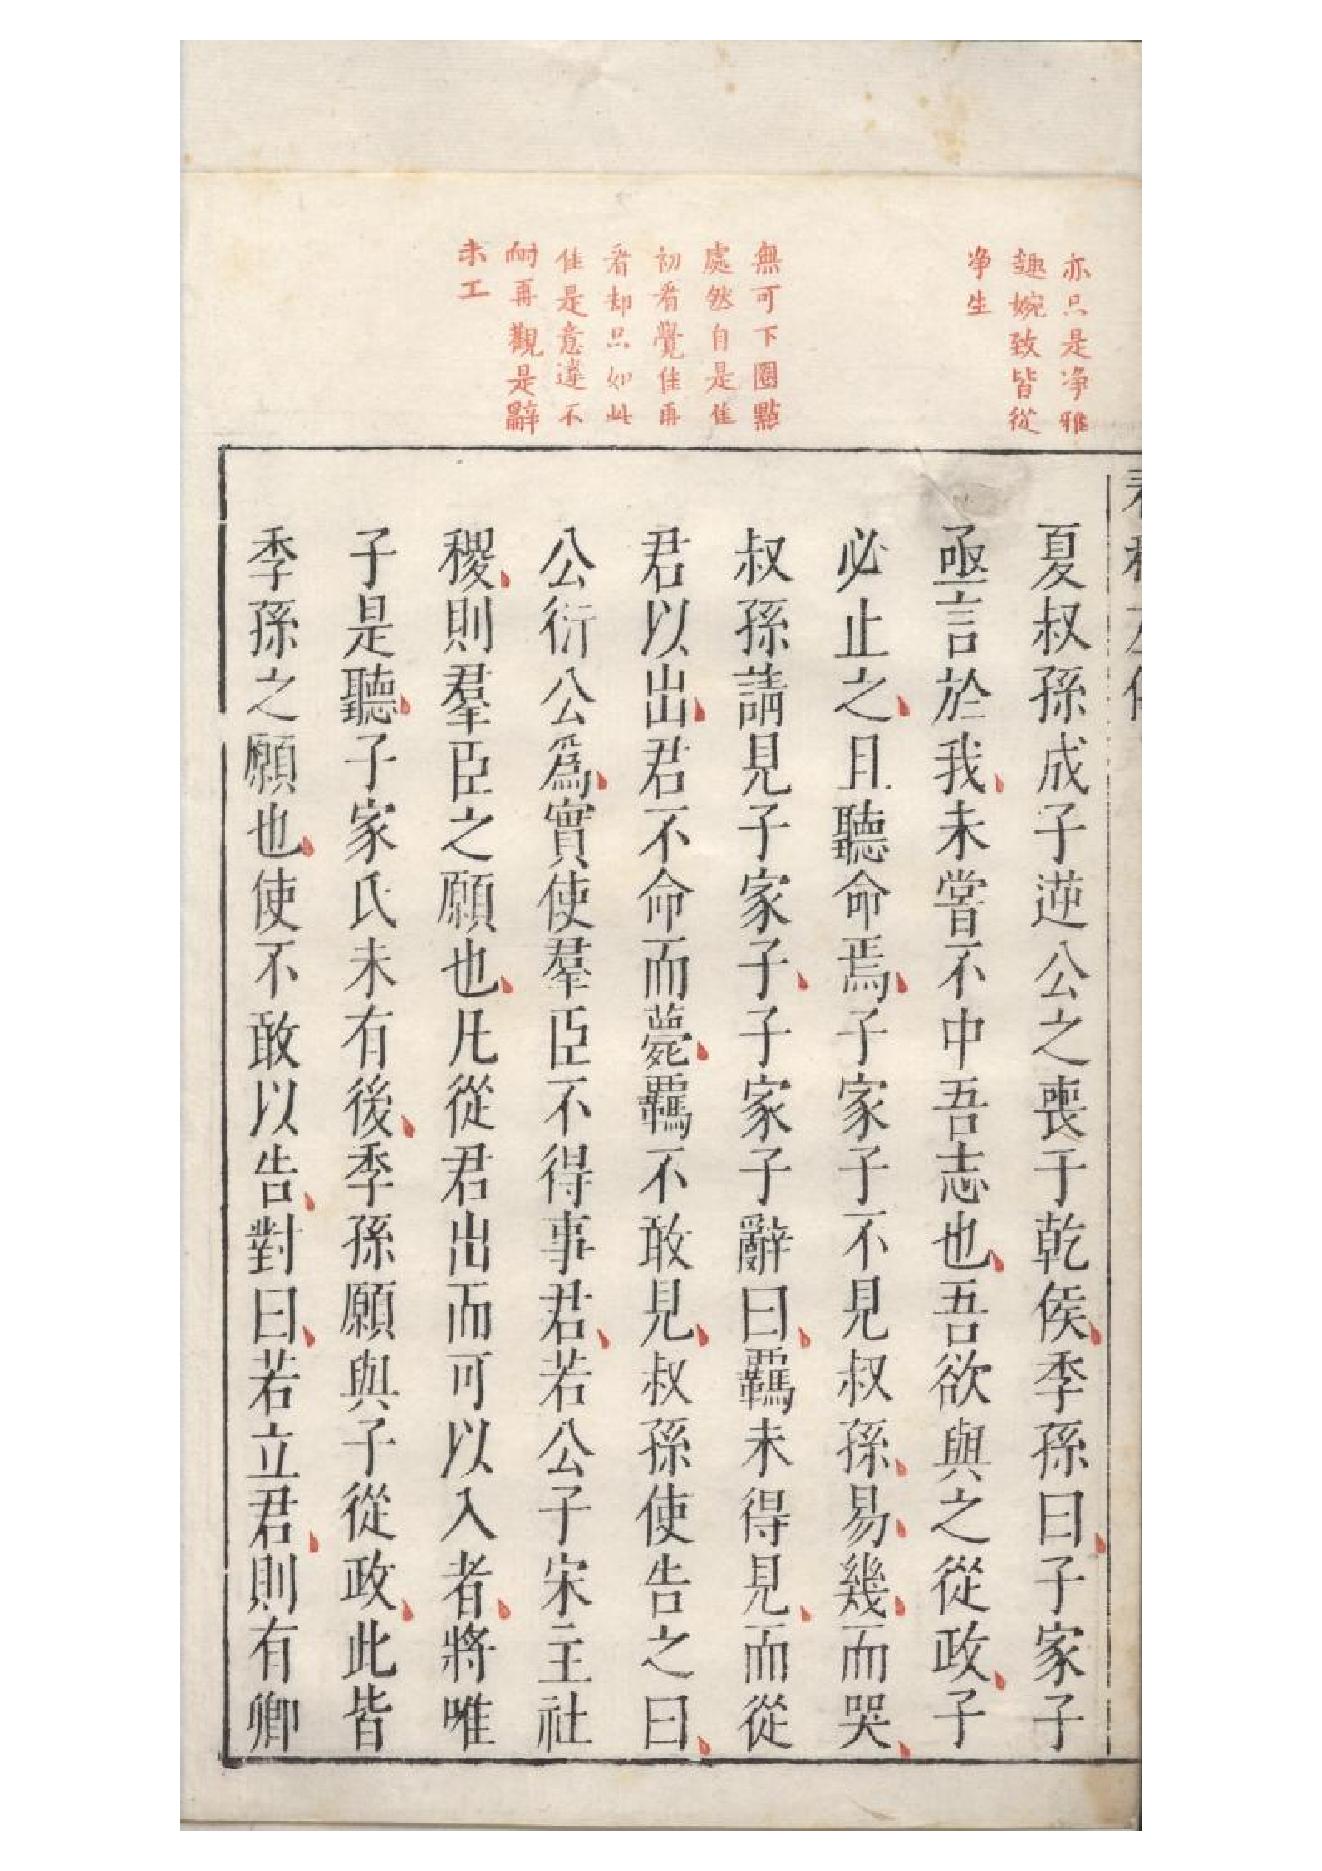 亦只是净雅
趣婉致皆從
净生
無可下圈點
處然自是佳
初看覺佳再
看却只如此
佳是意遣不
耐再觀是辭
未工
夏叔孫成子逆公之喪于乾侯季孫曰子家子
亟言於我未嘗不中吾志也吾欲與之從政子
必止之且聽命焉子家子不見叔孫易幾而哭
叔孫請見子家子子家子辭曰羈未得見而從
君以出君不命而薨羈不敢見叔孫使告之曰
公衍公爲實使羣臣不得事君若公子宋主社
稷則羣臣之願也凡從君出而可以入者將唯
子是聽子家氏未有後季孫願與子從政此皆
季孫之願也使不敢以告對曰若立君則有卿